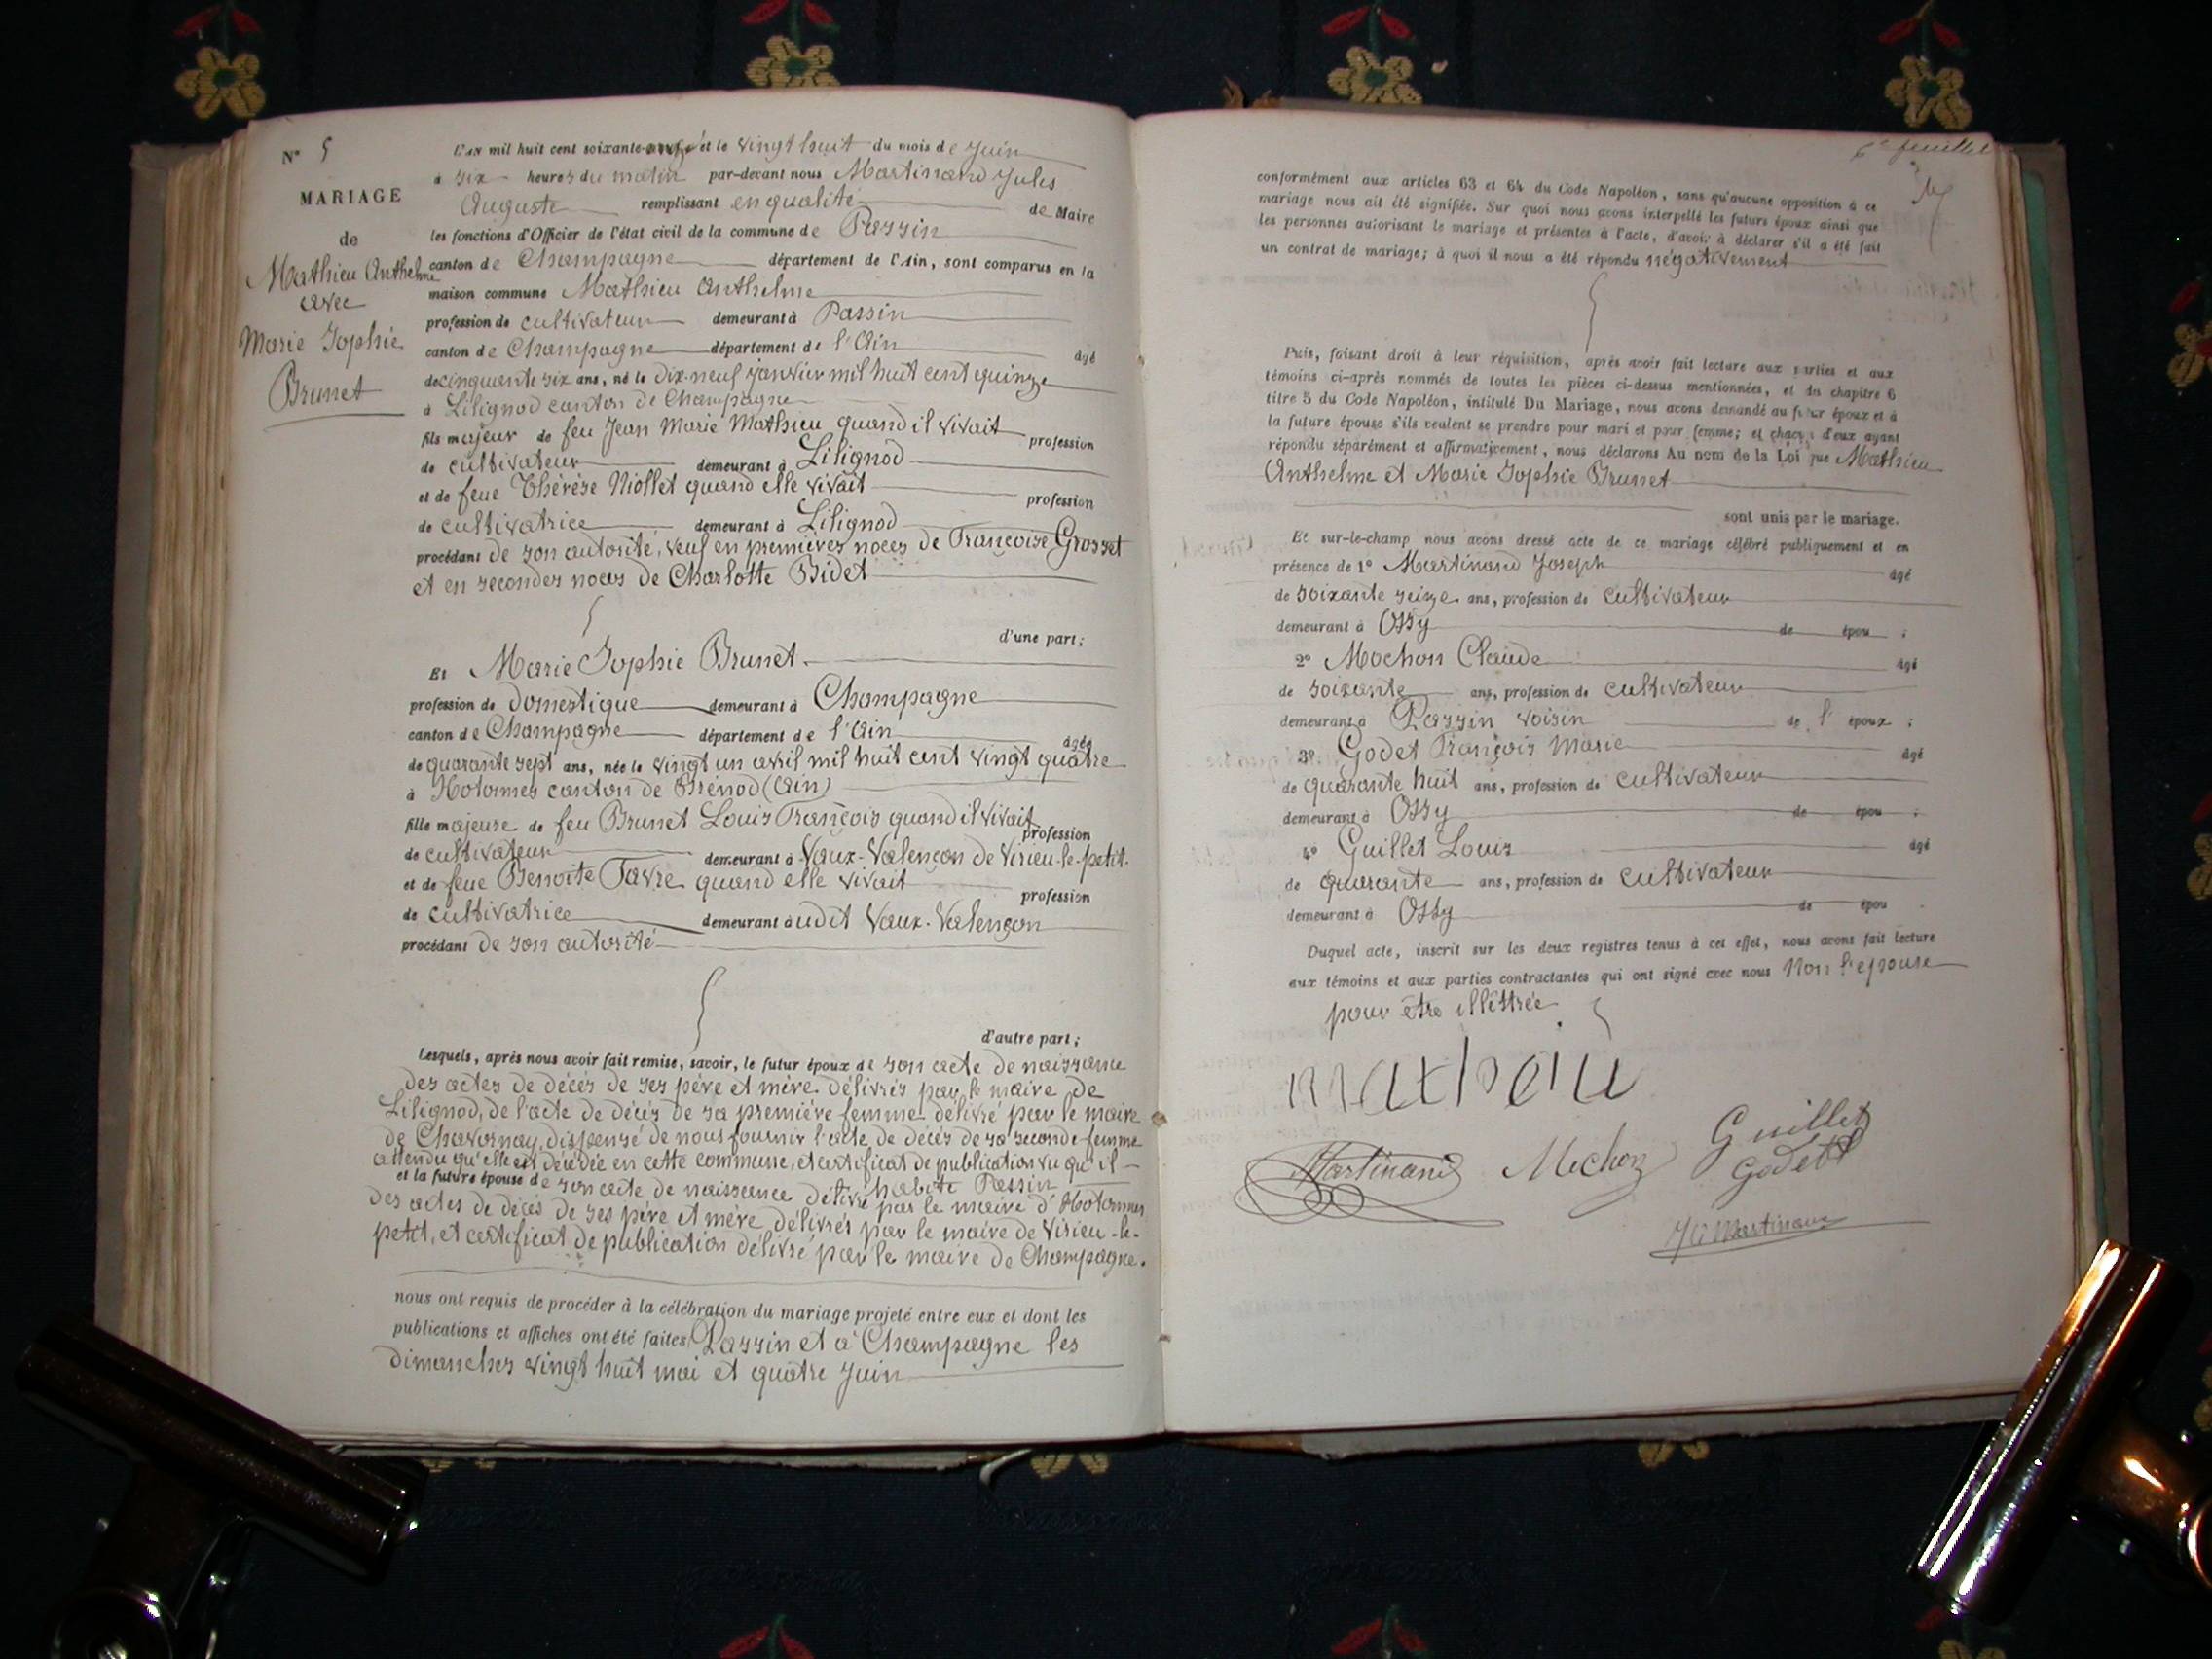 N° 5
MARIAGE
de
Mathieu Anthelme
avec
Marie Sophie
Brunet
L'AN mil huit cent soixante-onze et le vingt huit du mois de Juin
à six heures du matin par-devant nous Martinand Jules
Auguste remplissant en qualité de Maire
les fonctions d'Officier de l'état civil de la commune de Passin
canton de Champagne département de l'Ain, sont comparus en la
maison commune Mathieu Anthelme
profession de cultivateur demeurant à Passin
canton de Champagne département de l'Ain âgé
de cinquante six ans, né le dix-neuf janvier mil huit cent quinze
à Lilignod canton de Champagne
fils majeur de feu Jean Marie Mathieu quand il vivait profession
de cultivateur demeurant à Lilignod
et de feue Thérèse Niollet quand elle vivait profession
de cultivatrice demeurant à Lilignod
procédant de son autorité, veuf en premières noces de Françoise Grosset
et en secondes noces de Charlotte Bidet
d'une part;
Et Marie Sophie Brunet
profession de domestique demeurant à Champagne
canton de Champagne département de l'Ain âgée
de quarante sept ans, née le vingt un avril mil huit cent vingt quatre
à Hotonnes canton de Brénod (Ain)
fille majeure de feu Brunet Louis François quand il vivait profession
de cultivateur demeurant à Vaux-Valençon de Virieu-le-petit
et de feue Benoite Favre quand elle vivait profession
de cultivatrice demeurant audit Vaux-Valençon
procédant de son autorité
d'autre part;
Lesquels, après nous avoir fait remise, savoir, le futur époux de son acte de naissance
des actes de décès de ses père et mère délivrés par le maire de
Lilignod, de l'acte de décès de sa première femme délivré par le maire
de Chavornay, dispensé de nous fournir l'acte de décès de sa seconde femme
attendu qu'elle est décédée en cette commune, et certificat de publication vu qu'il
habite Passin
et la future épouse de son acte de naissance délivré par le maire d'Hotonnes
des actes de décès de ses père et mère délivrés par le maire de Virieu-le-
petit, et certificat de publication délivré par le maire de Champagne.
nous ont requis de procéder à la célébration du mariage projeté entre eux et dont les
publications et affiches ont été faites Passin et à Champagne les
dimanches vingt huit mai et quatre juin
6e feuillet
conformément aux articles 63 et 64 du Code Napoléon, sans qu'aucune opposition à ce
mariage nous ait été signifiée. Sur quoi nous avons interpellé les futurs époux ainsi que
les personnes autorisant le mariage et présentes à l'acte, d'avoir à déclarer s'il a été fait
un contrat de mariage; à quoi il nous a été répondu négativement
Puis, faisant droit à leur réquisition, après avoir fait lecture aux parties et aux
témoins ci-après nommés de toutes les pièces ci-dessus mentionnées, et du chapitre 6
titre 5 du Code Napoléon, intitulé Du Mariage, nous avons demandé au futur époux et à
la future épouse s'ils veulent se prendre pour mari et pour femme; et chacun d'eux ayant
répondu séparément et affirmativement, nous déclarons Au nom de la Loi que Mathieu
Anthelme et Marie Sophie Brunet
sont unis par le mariage.
Et sur-le-champ nous avons dressé acte de ce mariage célébré publiquement et en
présence de 1° Martinand Joseph âgé
de soixante seize ans, profession de cultivateur
demeurant à Ossy de épou ;
2° Mochon Claude âgé
de soixante ans, profession de cultivateur
demeurant à Passin voisin de l'époux ;
3° Godet François Marie âgé
de quarante huit ans, profession de cultivateur
demeurant à Ossy de épou ;
4° Guillet Louis âgé
de quarante ans, profession de cultivateur
demeurant à Ossy de épou .
Duquel acte, inscrit sur les deux registres tenus à cet effet, nous avons fait lecture
aux témoins et aux parties contractantes qui ont signé avec nous Non l'épouse
pour être illêttrée
matheiu
Martinand Mochon Guillet
Godet
JA Martinand